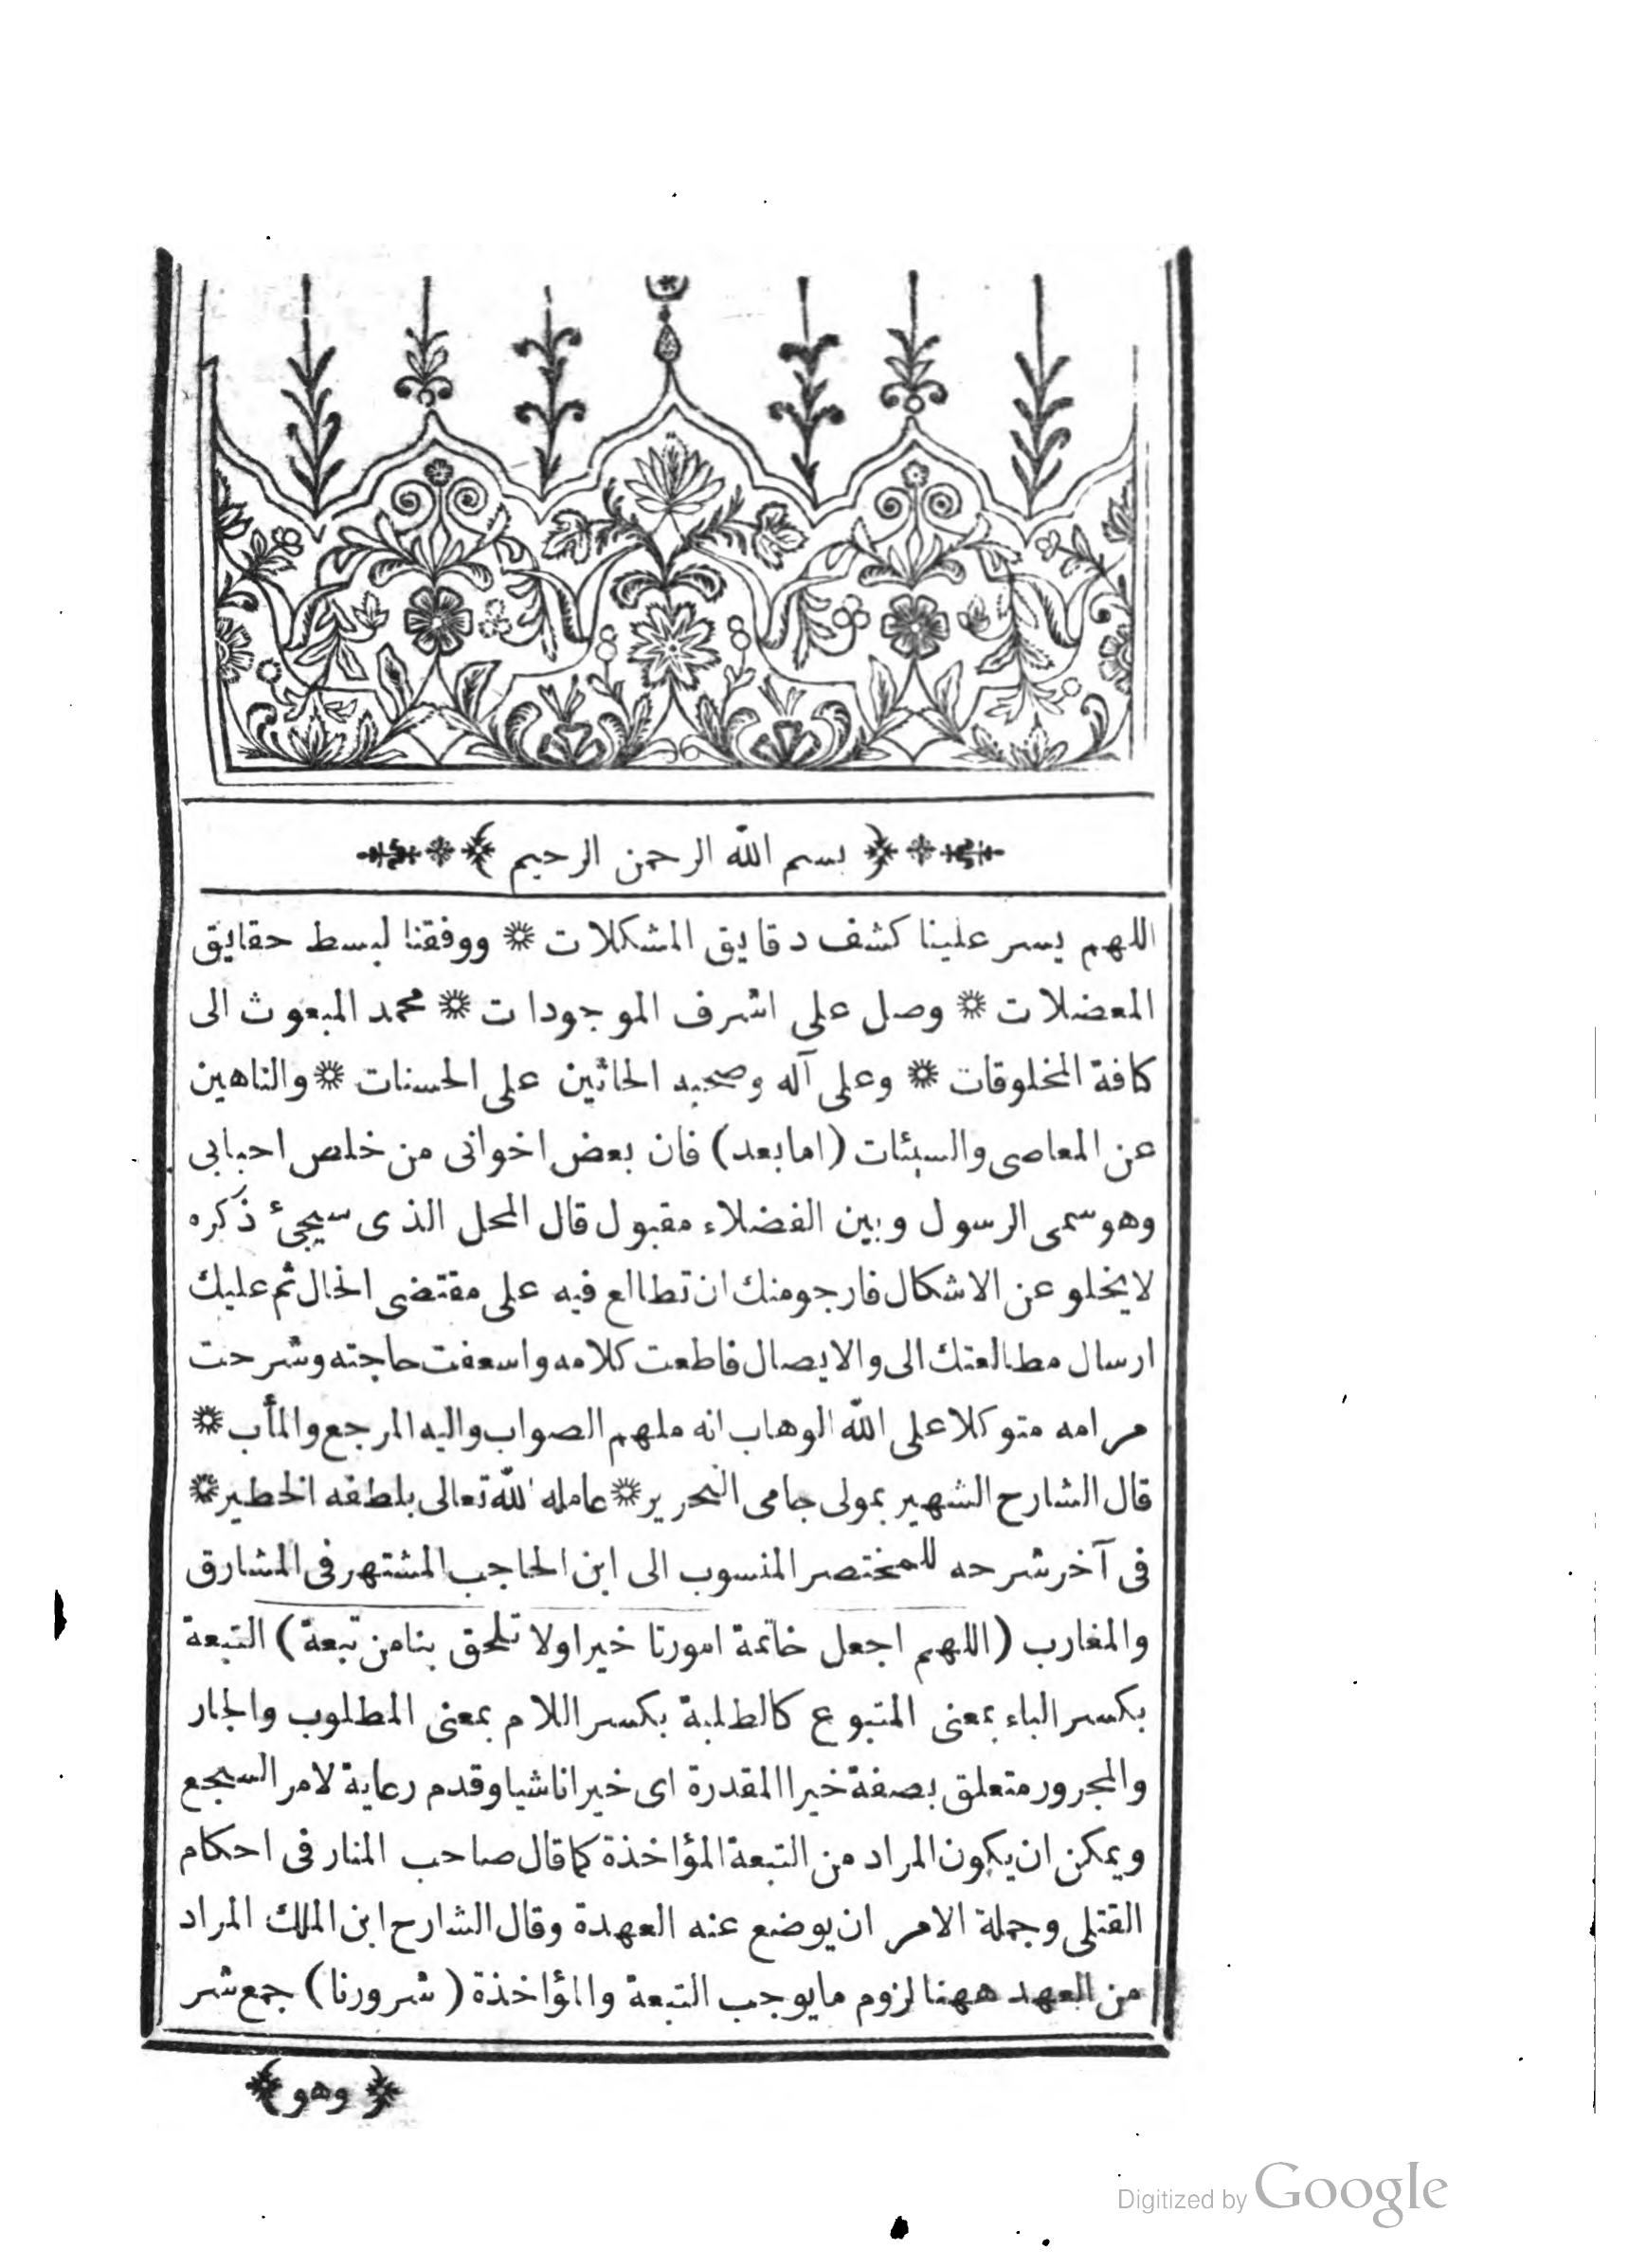 ﴿ بسم الله الرحمن الرحيم ﴾
اللهم يسر علينا كشف دقايق المشكلات * ووفقنا لبسط حقايق
المعضلات * وصل على اشرف الموجودات * محمد المبعوث الى
كافة المخلوقات * وعلى آله وصحبه الحاثين على الحسنات * والناهين
عن المعاصى والسيئات (امابعد) فان بعض اخوانى من خلص احبابى
وهو سمى الرسول وبين الفضلاء مقبول قال المحل الذى سيجئ ذكره
لايخلو عن الاشكال فارجومنك ان تطالع فيه على مقتضى الحال ثم عليك
ارسال مطالعتك الى والايصال فاطعت كلامه واسعفت حاجته وشرحت
مرامه متوكلا على الله الوهاب انه ملهم الصواب واليه المرجع والمأب *
قال الشارح الشهير بمولى جامى النحرير * عامله الله تعالى بلطفه الخطير *
فى آخر شرحه للمختصر المنسوب الى ابن الحاجب المشتهر فى المشارق
والمغارب (اللهم اجعل خاتمة امورنا خيرا ولا تلحق بنا من تبعة) التبعة
بكسر الباء بمعنى المتبوع كالطلبة بكسر اللام بمعنى المطلوب والجار
والمجرور متعلق بصفة خيرا المقدرة اى خيرا ناشيا وقدم رعاية لامر السجع
ويمكن ان يكون المراد من التبعة المؤاخذة كما قال صاحب المنار فى احكام
القتلى وجملة الامر ان يوضع عنه العهدة وقال الشارح ابن الملك المراد
من العهد ههنا لزوم مايوجب التبعة والمؤاخذة (شرورنا) جمع شر
﴿ وهو ﴾
Digitized by Google